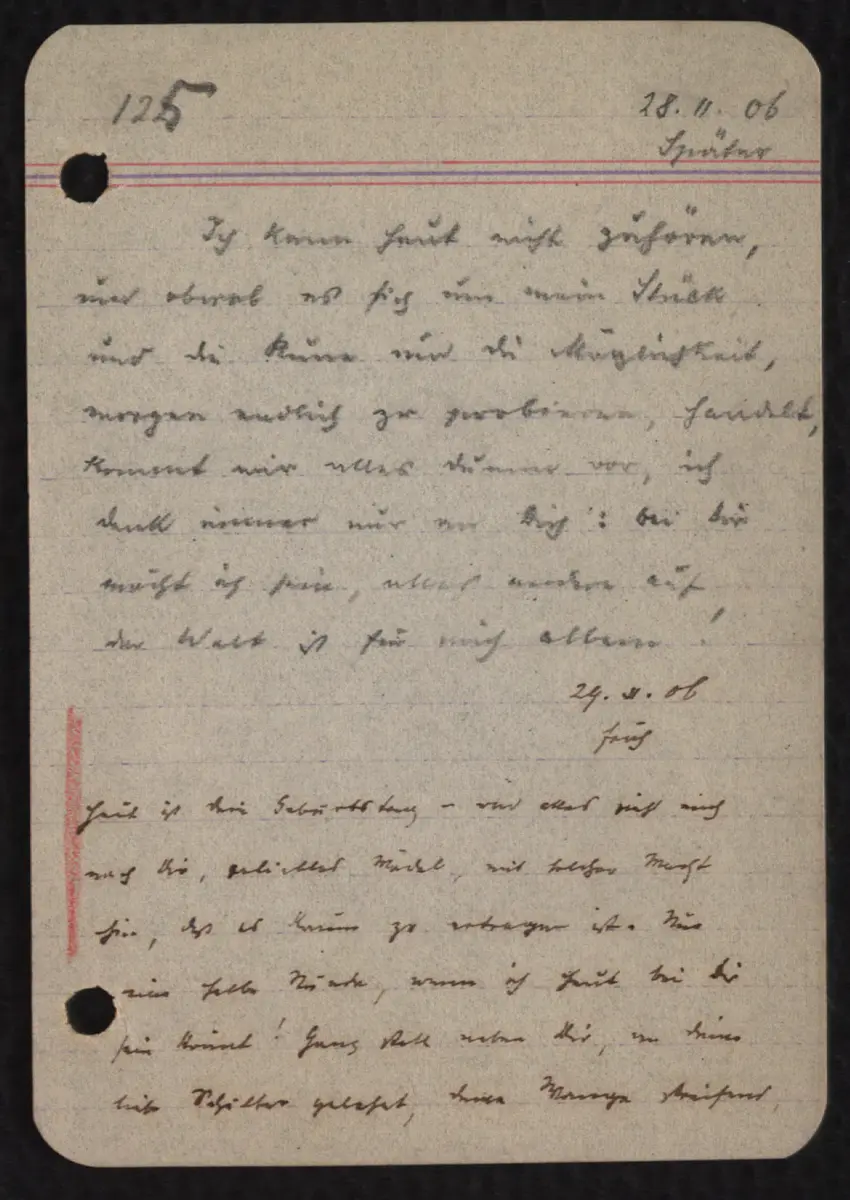 125
28. 11. 06
Später
Ich kann heut nicht zuhören,
und obwol es sich um mein Stück
und die Ruhe und die Möglichkeit,
morgen endlich zu probieren, handelt,
kommt mir alles dumm vor, ich
denk immer nur an Dich: bei Dir
möcht ich sein, alles andere auf
der Welt ist für mich albern!
29. 11. 06
früh
Heut ist dein Geburtstag – und alles zieht mich
nach Dir, geliebtes Mädel, mit solcher Macht
hin, daß es kaum zu ertragen ist. Nur
eine halbe Stunde, wenn ich heut bei Dir
sein könnt! Ganz still neben Dir, an deine
liebe Schulter gelehnt, deine Wange streifend,